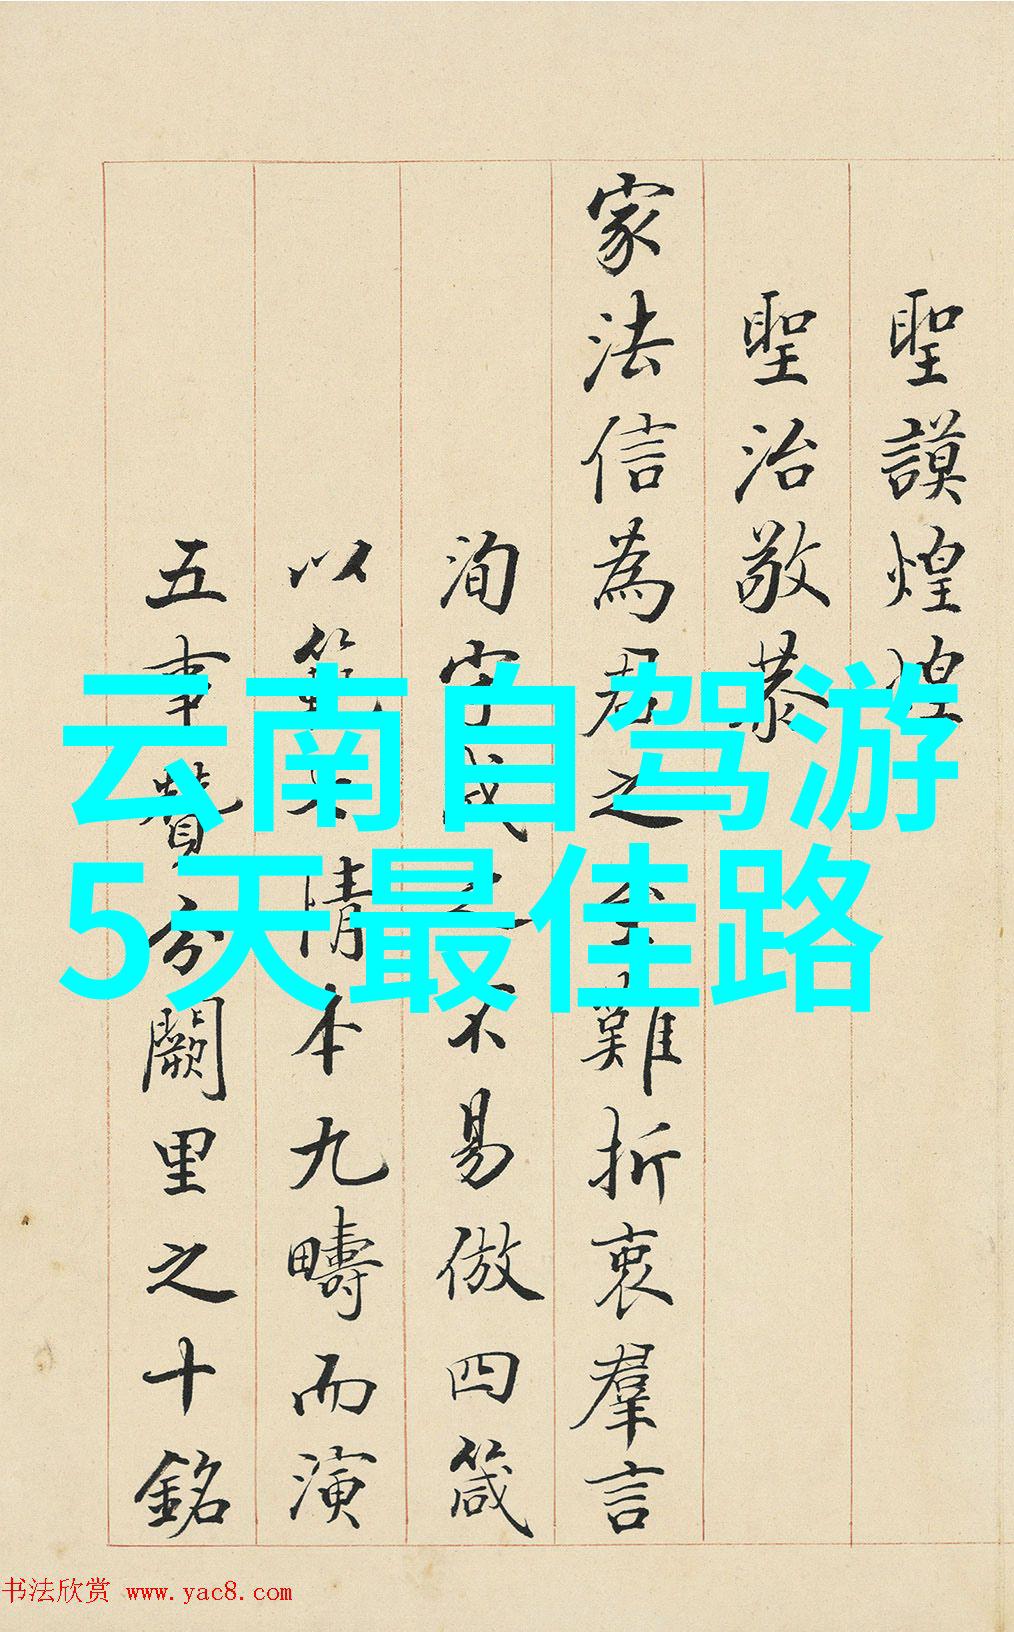 聖謨煌煌
聖治敬恭
家法信為君之難折衷羣言
洵守成之不易倣四箴
以範情本九疇而演
五事贊分闕里之十銘
云南自驾游
5天最佳路
书法欣赏 www.yac8.com